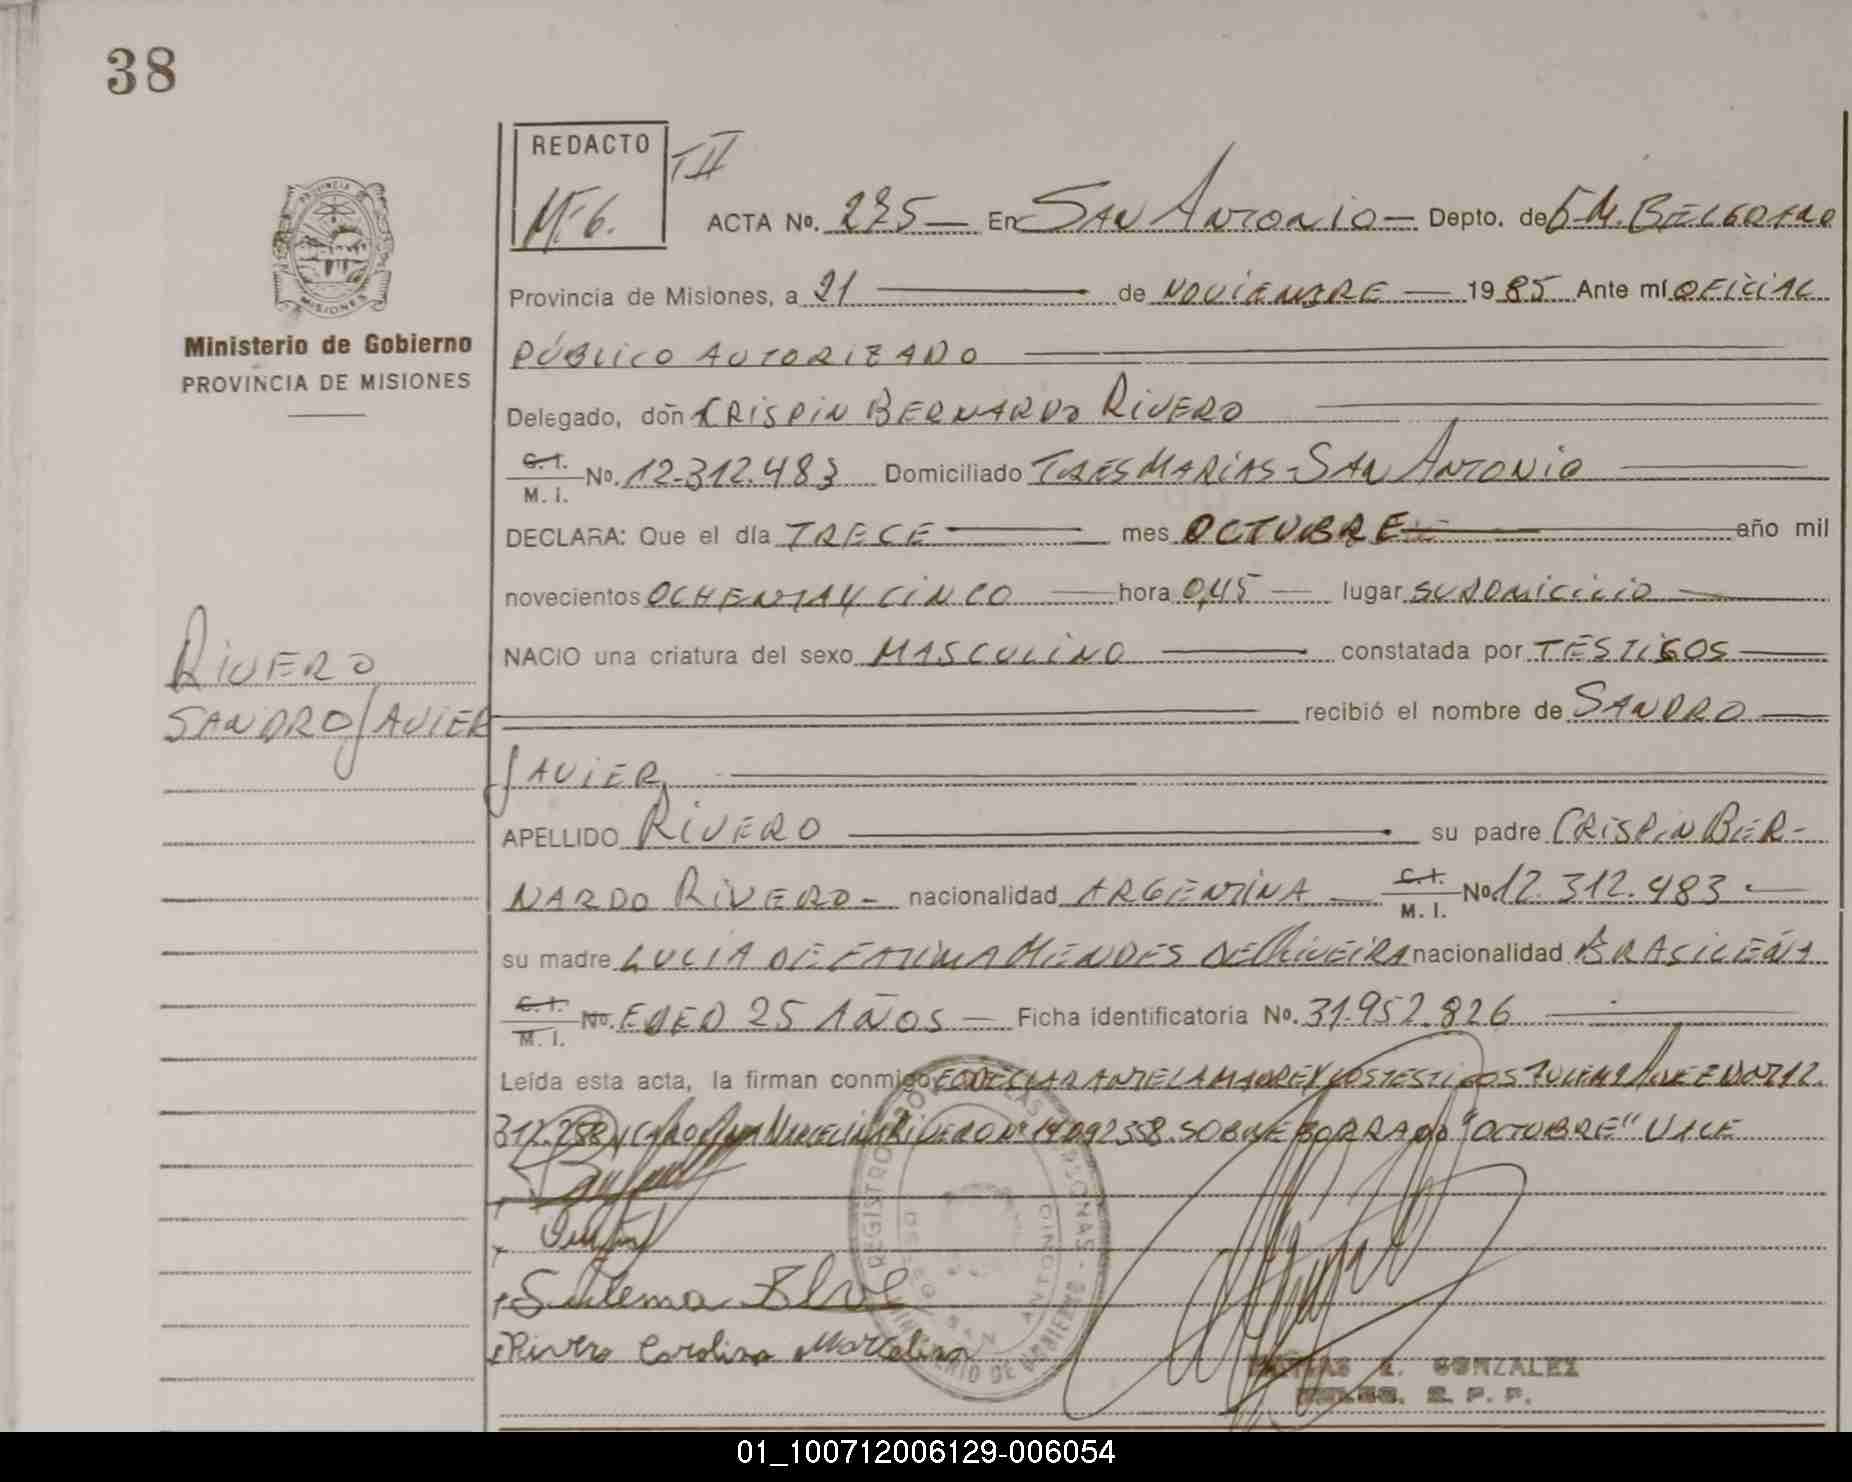 38
REDACTO
TII
ACTA No. 275 — En SAN ANTONIO — Depto. de G. M. BELGRANO
Provincia de Misiones, a 21 — de NOVIEMBRE — 1985 Ante mí OFICIAL
PROVINCIA DE MISIONES
Ministerio de Gobierno
PROVINCIA DE MISIONES
PÚBLICO AUTORIZADO
Delegado, don CRISPIN BERNARDO RIVERO
C. I. M. I. No. 12.312.483 Domiciliado TRES MARIAS - SAN ANTONIO
DECLARA: Que el día TRECE — mes OCTUBRE — año mil
novecientos OCHENTA Y CINCO — hora 0,45 — lugar SU DOMICILIO —
RIVERO
SANDRO JAVIER
NACIO una criatura del sexo MASCULINO — constatada por TESTIGOS —
recibió el nombre de SANDRO —
JAVIER
APELLIDO RIVERO — su padre CRISPIN BER-
NARDO RIVERO - nacionalidad ARGENTINA — C. I. M. I. No. 12.312.483 —
su madre LUCIA DE FATIMA MENDES DE OLIVEIRA nacionalidad BRASILEÑA
C. I. M. I. No. EDED 25 AÑOS — Ficha identificatoria No. 31.952.826
Leída esta acta, la firman conmigo EL DECLARANTE LA MADRE Y LOS TESTIGOS
312.258 Y CAROLINA MARCELINA RIVERO Nº 14.092.358. SOBRE BORRADO "OCTUBRE" VALE
REGISTRO PERSONAS SAN ANTONIO MINISTERIO DE GOBIERNO
Rivero Carolina Marcelina
GONZALEZ
01_100712006129-006054